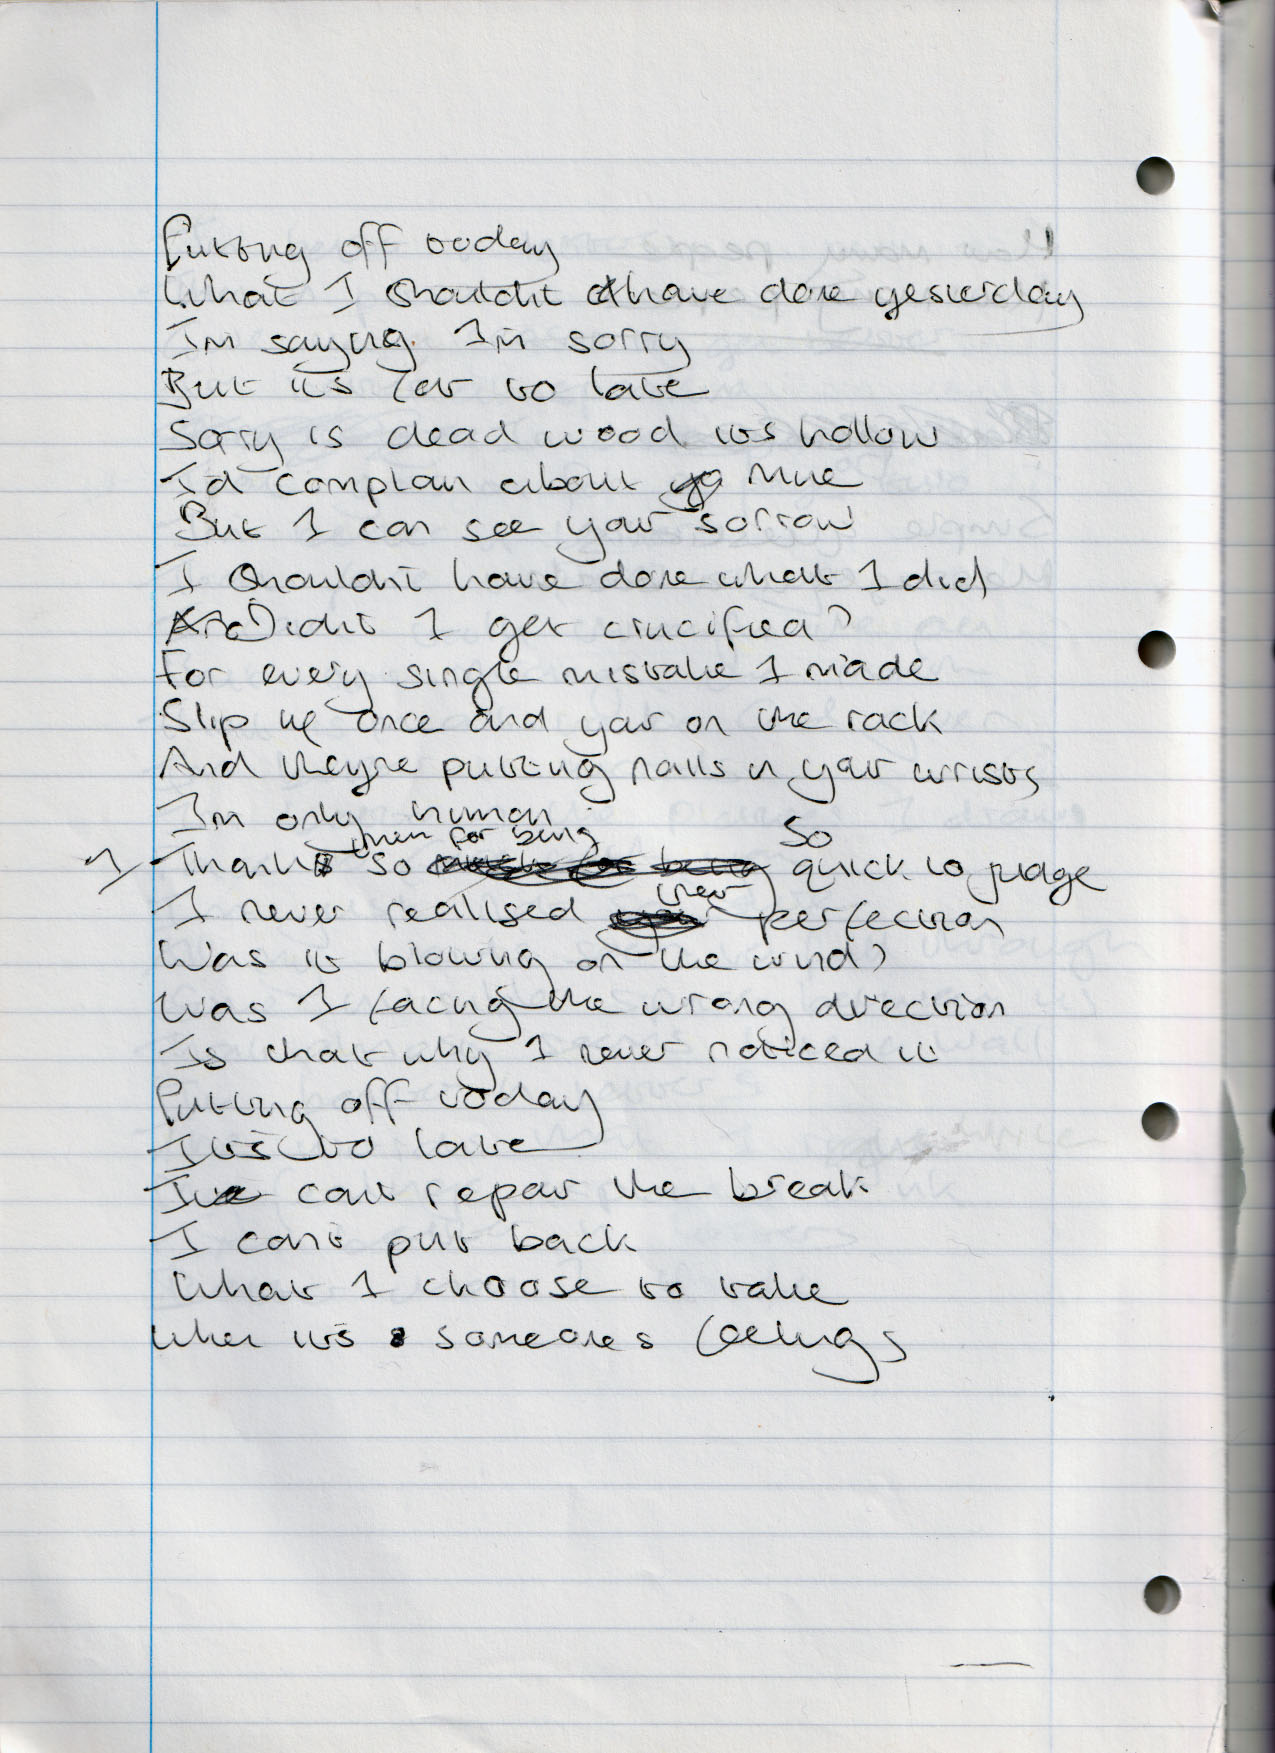 Putting off today
What I shouldn't have done yesterday
Im saying Im sorry
But its far to late
Sorry is dead wood its hollow
I'd complain about mine
But I can see your sorrow
I shouldn't have done what I did
Didn't I get crucified?
For every single mistake I made
Slip up once and your on the rack
And theyre putting nails in your wrists
Im only human
them for being So
I Thank so quick to judge
their
I never realised perfection
Was it blowing on the wind?
Was I facing the wrong direction
Is that why I never noticed it
Putting off today
Its to late
I cant repair the break
I can't put back
What I choose to take
When its someones feelings